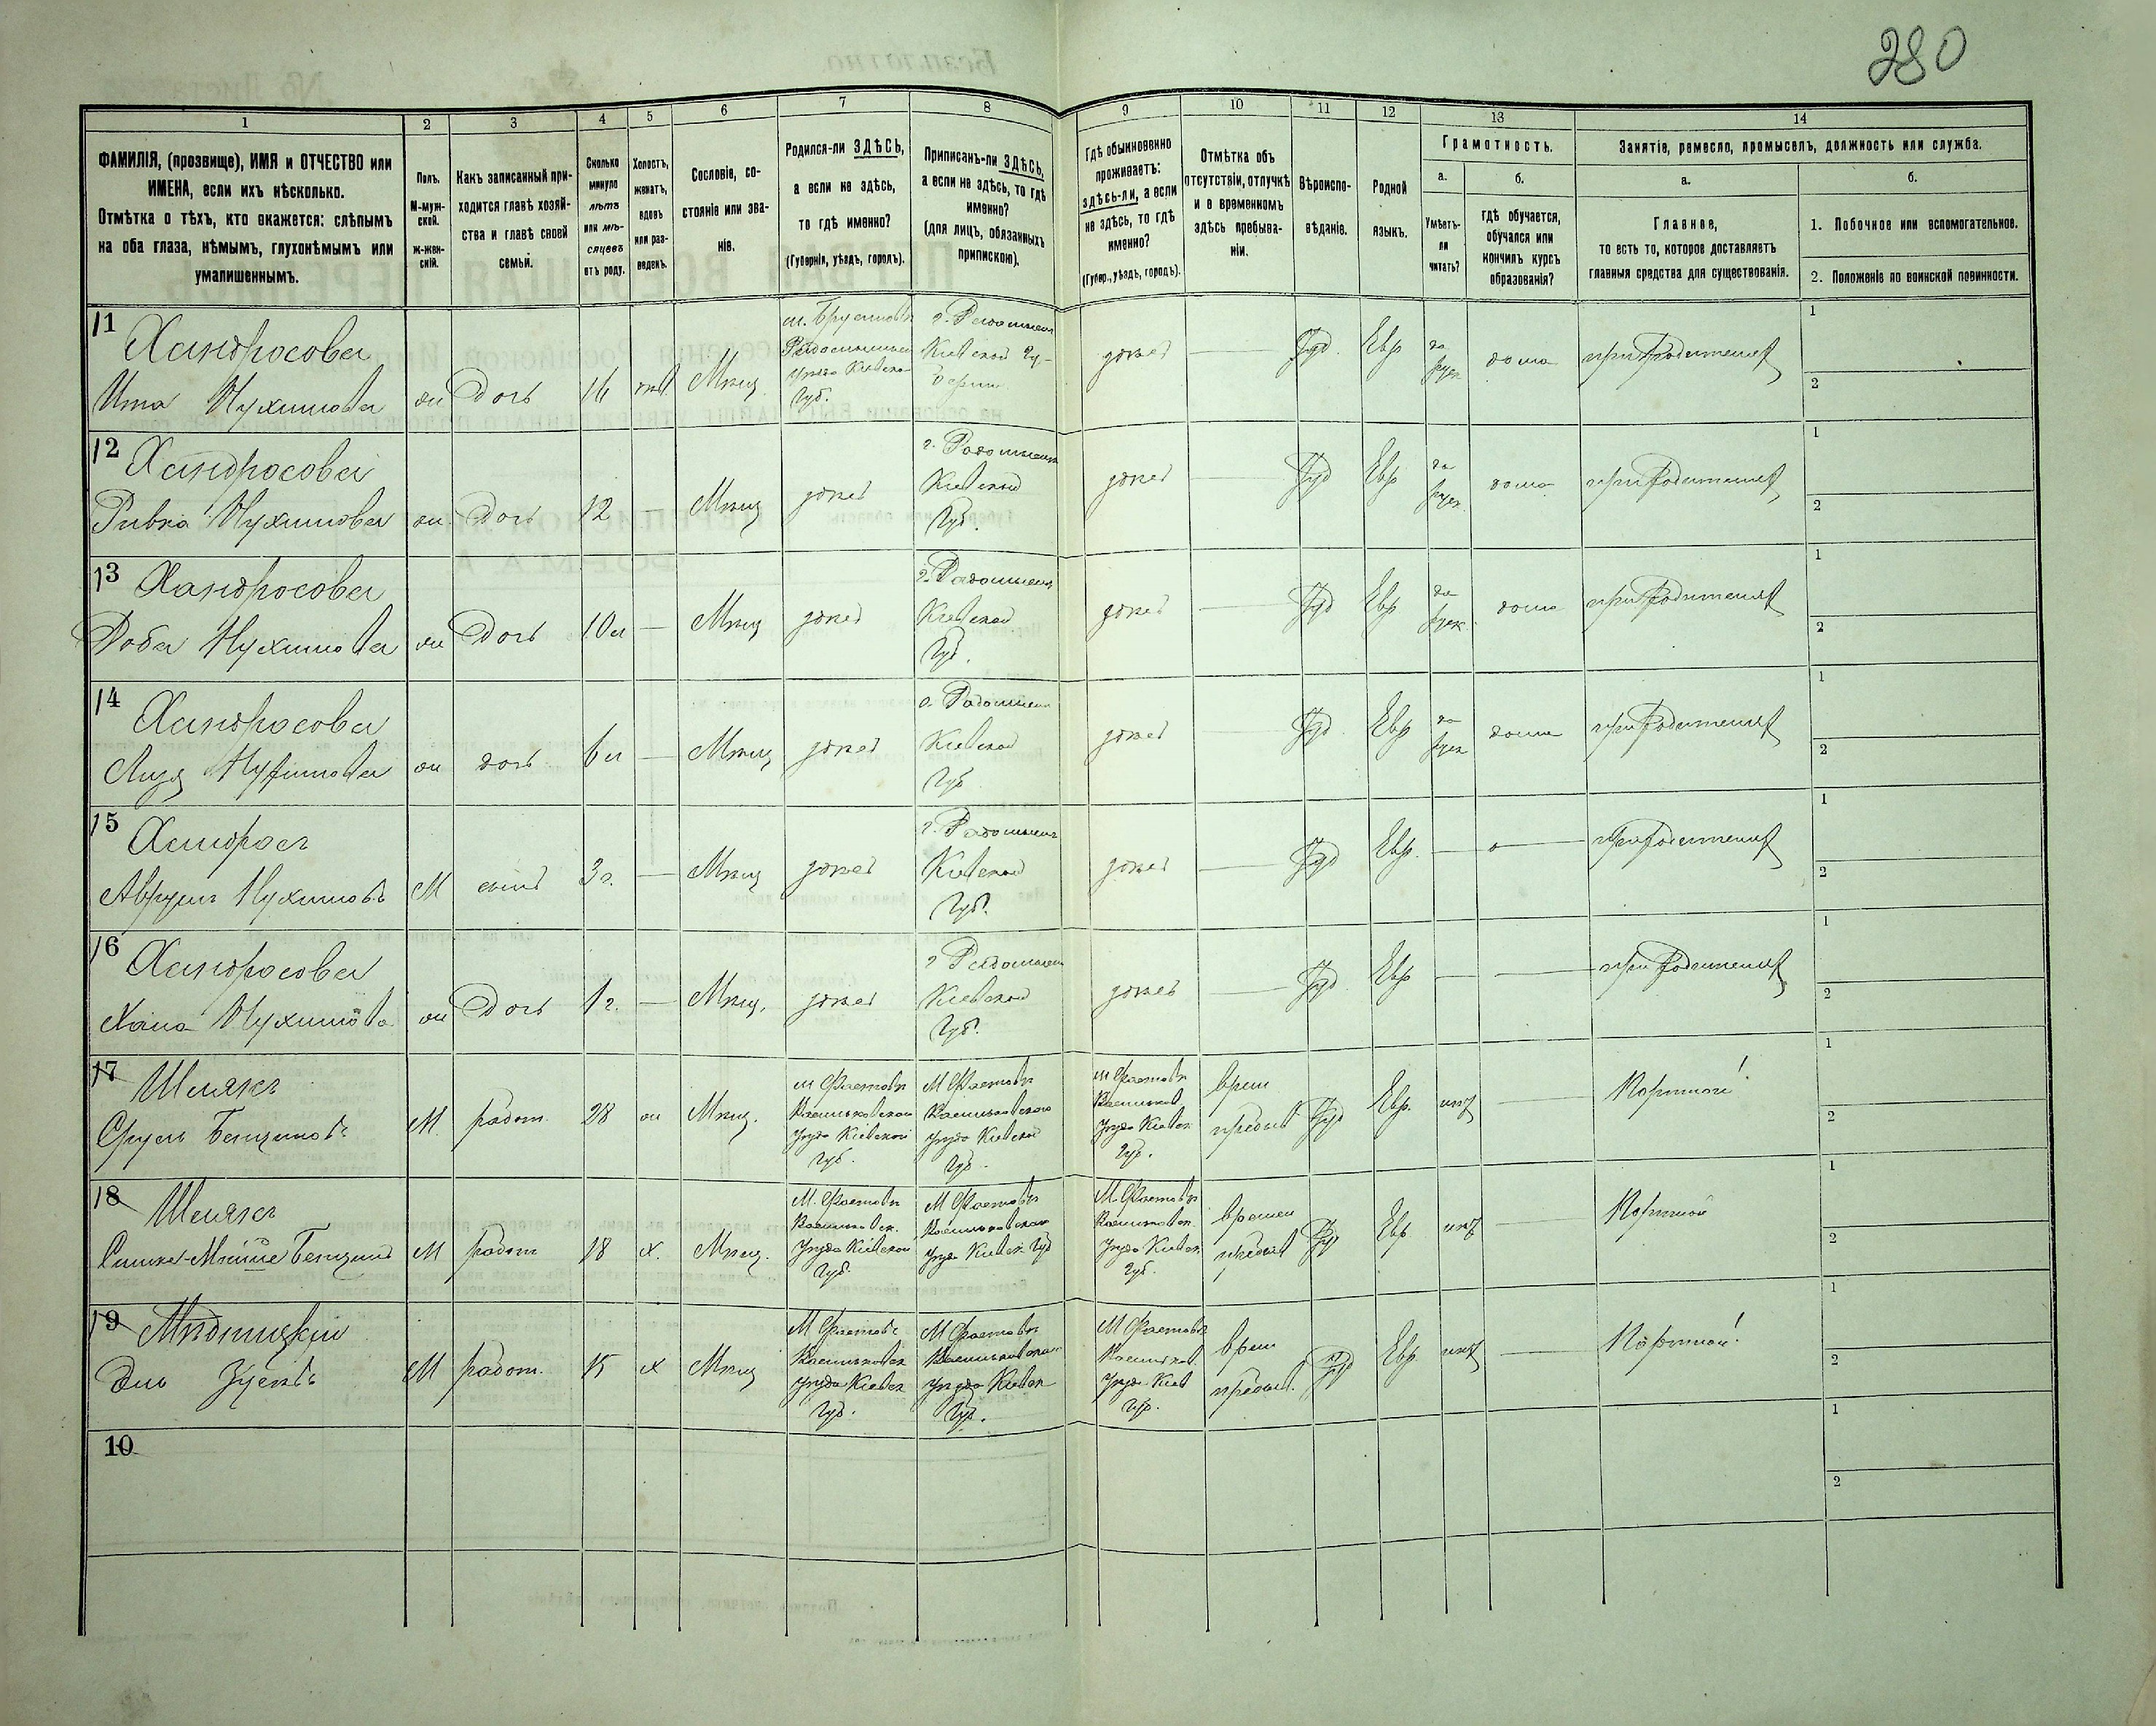 280
1 2 3 4 5 6 7 8 9 10 11 12 13 14
ФАМИЛІЯ, (прозвище), ИМЯ и ОТЧЕСТВО или
ИМЕНА, если ихъ нѣсколько.
Отмѣтка о тѣхъ, кто окажется: слѣпымъ
на оба глаза, нѣмымъ, глухонѣмымъ или
умалишеннымъ.
Полъ.
М-муж-
ской.
Ж-жен-
скій.
Какъ записанный при-
ходится главѣ хозяй-
ства и главѣ своей
семьи.
Сколько
минуло
лѣтъ
или мѣ-
сяцевъ
отъ роду.
Холостъ,
женатъ,
вдовъ
или раз-
веденъ.
Сословіе, со-
стояніе или зва-
ніе.
Родился-ли ЗДѢСЬ,
а если не здѣсь,
то гдѣ именно?
(Губернія, уѣздъ, городъ).
Приписанъ-ли ЗДѢСЬ,
а если не здѣсь, то гдѣ
именно?
(для лицъ, обязанныхъ
припискою).
Гдѣ обыкновенно
проживаетъ:
здѣсь-ли, а если
не здѣсь, то гдѣ
именно?
(Губер., уѣздъ, городъ).
Отмѣтка объ
отсутствіи, отлучкѣ
и о временномъ
здѣсь пребыва-
ніи.
Вѣроиспо-
вѣданіе.
Родной
языкъ.
Грамотность.
а.
Умѣетъ-
ли
читать?
б.
гдѣ обучается,
обучался или
кончилъ курсъ
образованія?
Занятіе, ремесло, промыселъ, должность или служба.
а.
Главное,
то есть то, которое доставляетъ
главныя средства для существованія.
б.
1. Побочное или вспомогательное.
2. Положеніе по воинской повинности.
11
Хандросова
Ита Нухимова
Дочь
14
Мѣщ
Кіевской Гу-
берніи
здѣсь
Іуд.
Евр
да
рус
дома
при родителяхъ
1
2
12
Хандросова
Ривка Нухимова
Дочь
12
—
Мѣщ
здѣсь
г. Радомысль
Кіевской
Губ.
здѣсь
—
Іуд
Евр
да
рус
дома
при родителяхъ
1
2
13
Хандросова
Доба Нухимова
Дочь
10 л
—
Мѣщ
здѣсь
г. Радомысль
Кіевской
Губ.
здѣсь
—
Іуд
Евр
да
рус
дома
при родителяхъ
1
2
14
Хандросова
Нухимова
дочь
6 л
—
Мѣщ
здѣсь
г. Радомысль
Кіевской
Губ
здѣсь
—
Іуд
Евр
да
рус
дома
при родителяхъ
1
2
15
Хандросъ
Аврумъ Нухимовъ
М
сынъ
3 г.
—
Мѣщ
здѣсь
г. Радомысль
Кіевской
Губ.
здѣсь
—
Іуд
Евр.
—
—
при родителяхъ
1
2
16
Хандросова
Хана Нухимова
Дочь
1 г.
—
Мѣщ.
здѣсь
г Радомысль
Кіевской
Губ.
здѣсь
—
Іуд
Евр
—
—
при родителяхъ
1
2
17
Шлякъ
Сруль
М
работ.
28
Мѣщ.
м Фастовъ
Васильковской
уѣзда Кіевской
Губ.
М Фастовъ
Васильковского
уѣзда Кіевской
Губ.
м Фастовъ
Васильков.
уѣзда Кіевск
Губ.
врем
пребыв
Іуд
Евр.
нѣтъ
—
Портной
1
2
18
Шлякъ
М
работ
18
х.
Мѣщ.
М. Фастовъ
Васильковск.
уѣзда Кіевской
Губ.
М Фастовъ
Васильковского
уѣзда Кіевск Губ
М. Фастовъ
Васильковск.
уѣзда Кіевск
Губ.
времен
пребыв
Іуд
Евр
нѣтъ
—
Портной
1
2
19
М
работ.
15
х
Мѣщ
М Фастовъ
Васильковск
уѣзда Кіевск
Губ.
М Фастовъ
Васильковского
уѣзда Кіевск
Губ.
М Фастовъ
Васильков
уѣзда Кіев
Губ.
врем
пребыв.
Іуд
Евр
нѣтъ
—
Портной
1
2
10
1
2